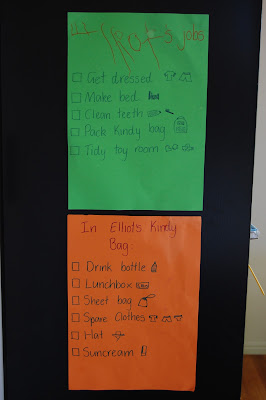 Elliot's jobs
Get dressed
Make bed
Clean teeth
Pack Kindy bag
Tidy toy room
In Elliot's Kindy
Bag:
Drink bottle
Lunchbox
Sheet bag
Spare Clothes
Hat
Suncream